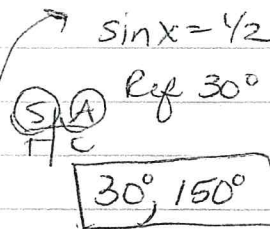 sin x = 1/2
Ref 30°
S A
T C
30°, 150°